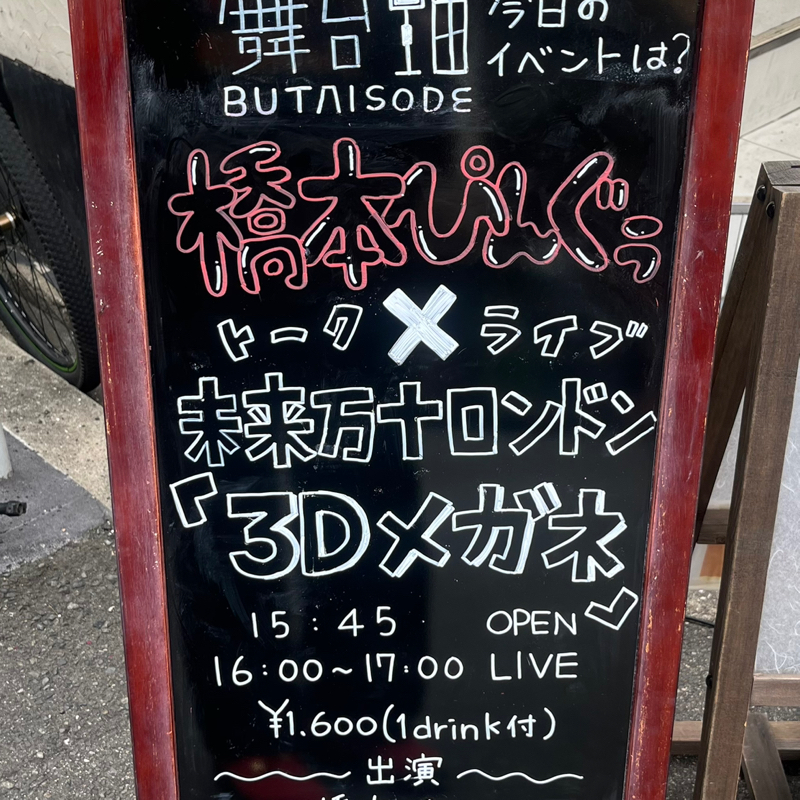 舞台袖 今日の
イベントは?
BUTAISODE
橋本ぴんぐぅ
トーク×ライブ
未来万十ロンドン
『3Dメガネ』
15:45 OPEN
16:00~17:00 LIVE
¥1.600(1drink付)
出演